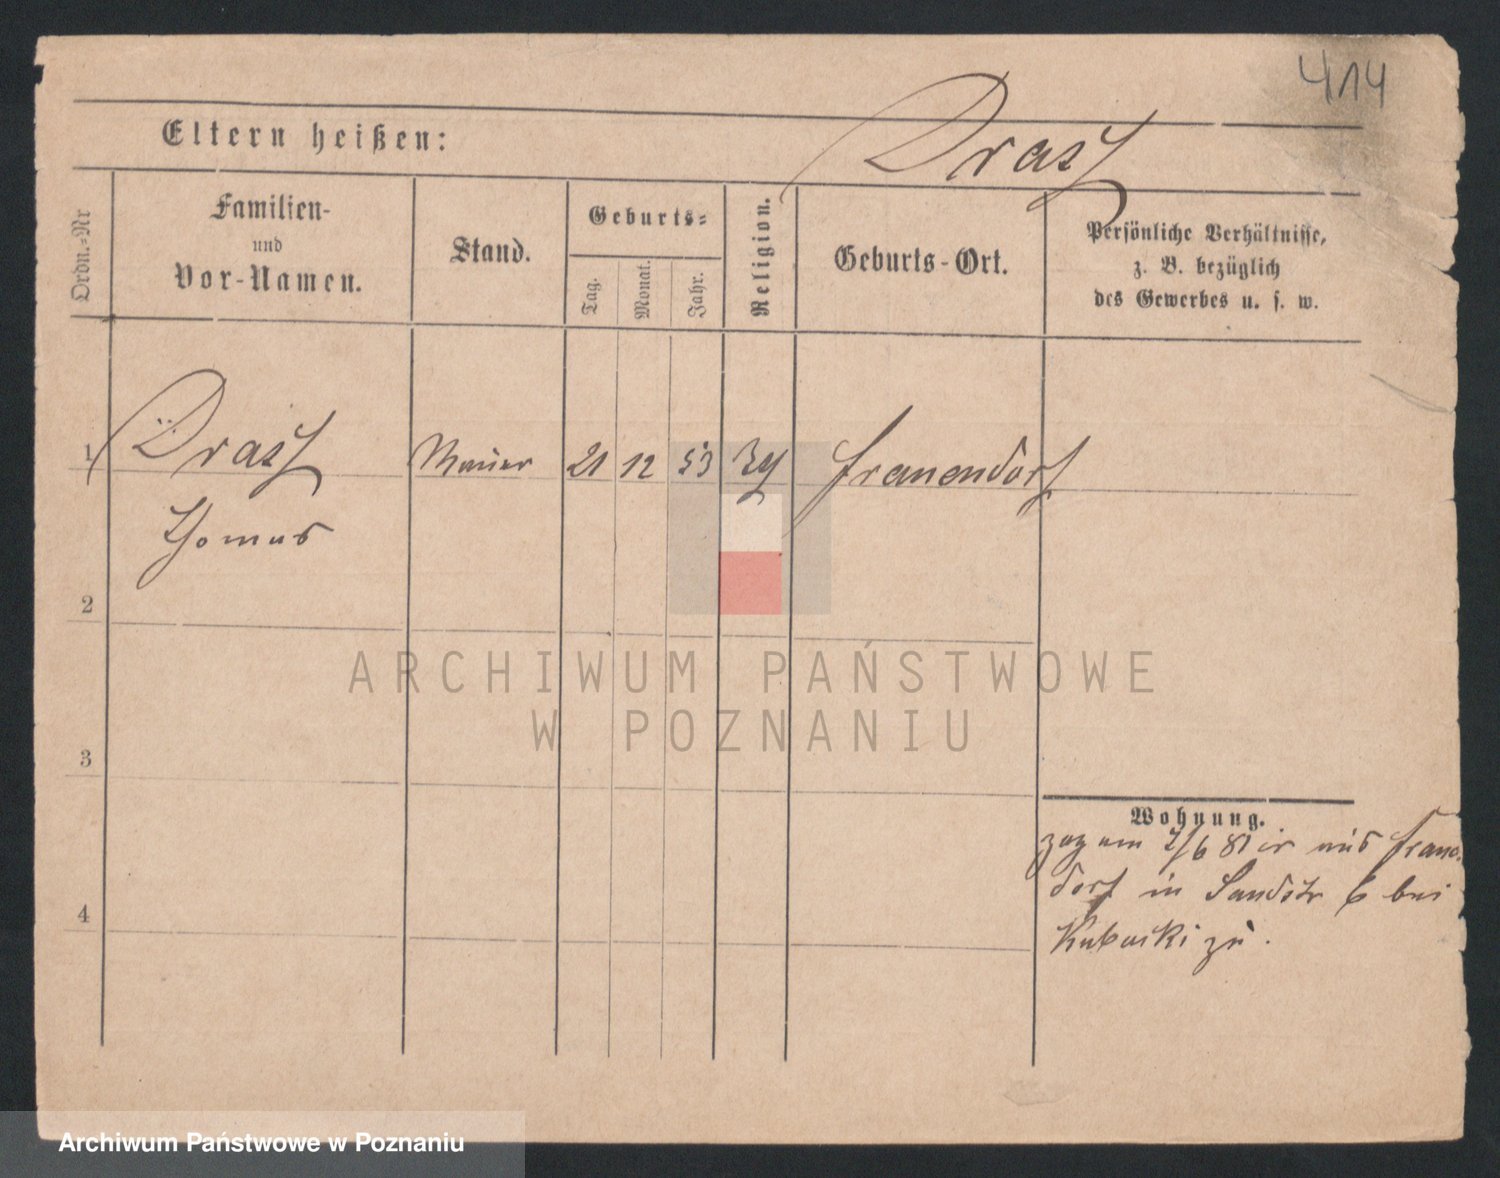 414
Eltern heißen:
Drasz
Ordn.=Nr
Familien-
und
Vor-Namen.
Stand.
Geburts=
Tag.
Monat.
Jahr.
Religion.
Geburts-Ort.
Persönliche Verhältnisse,
z. B. bezüglich
des Gewerbes u. s. w.
1 Drasz 21 12 53 Frauendorf
Thomas
2
3
4
ARCHIWUM PAŃSTWOWE
W POZNANIU
Wohnung.
zog am 2/6 81 aus Frauen
dorf in Sandstr 6 bei
Kubacki zu.
Archiwum Państwowe w Poznaniu